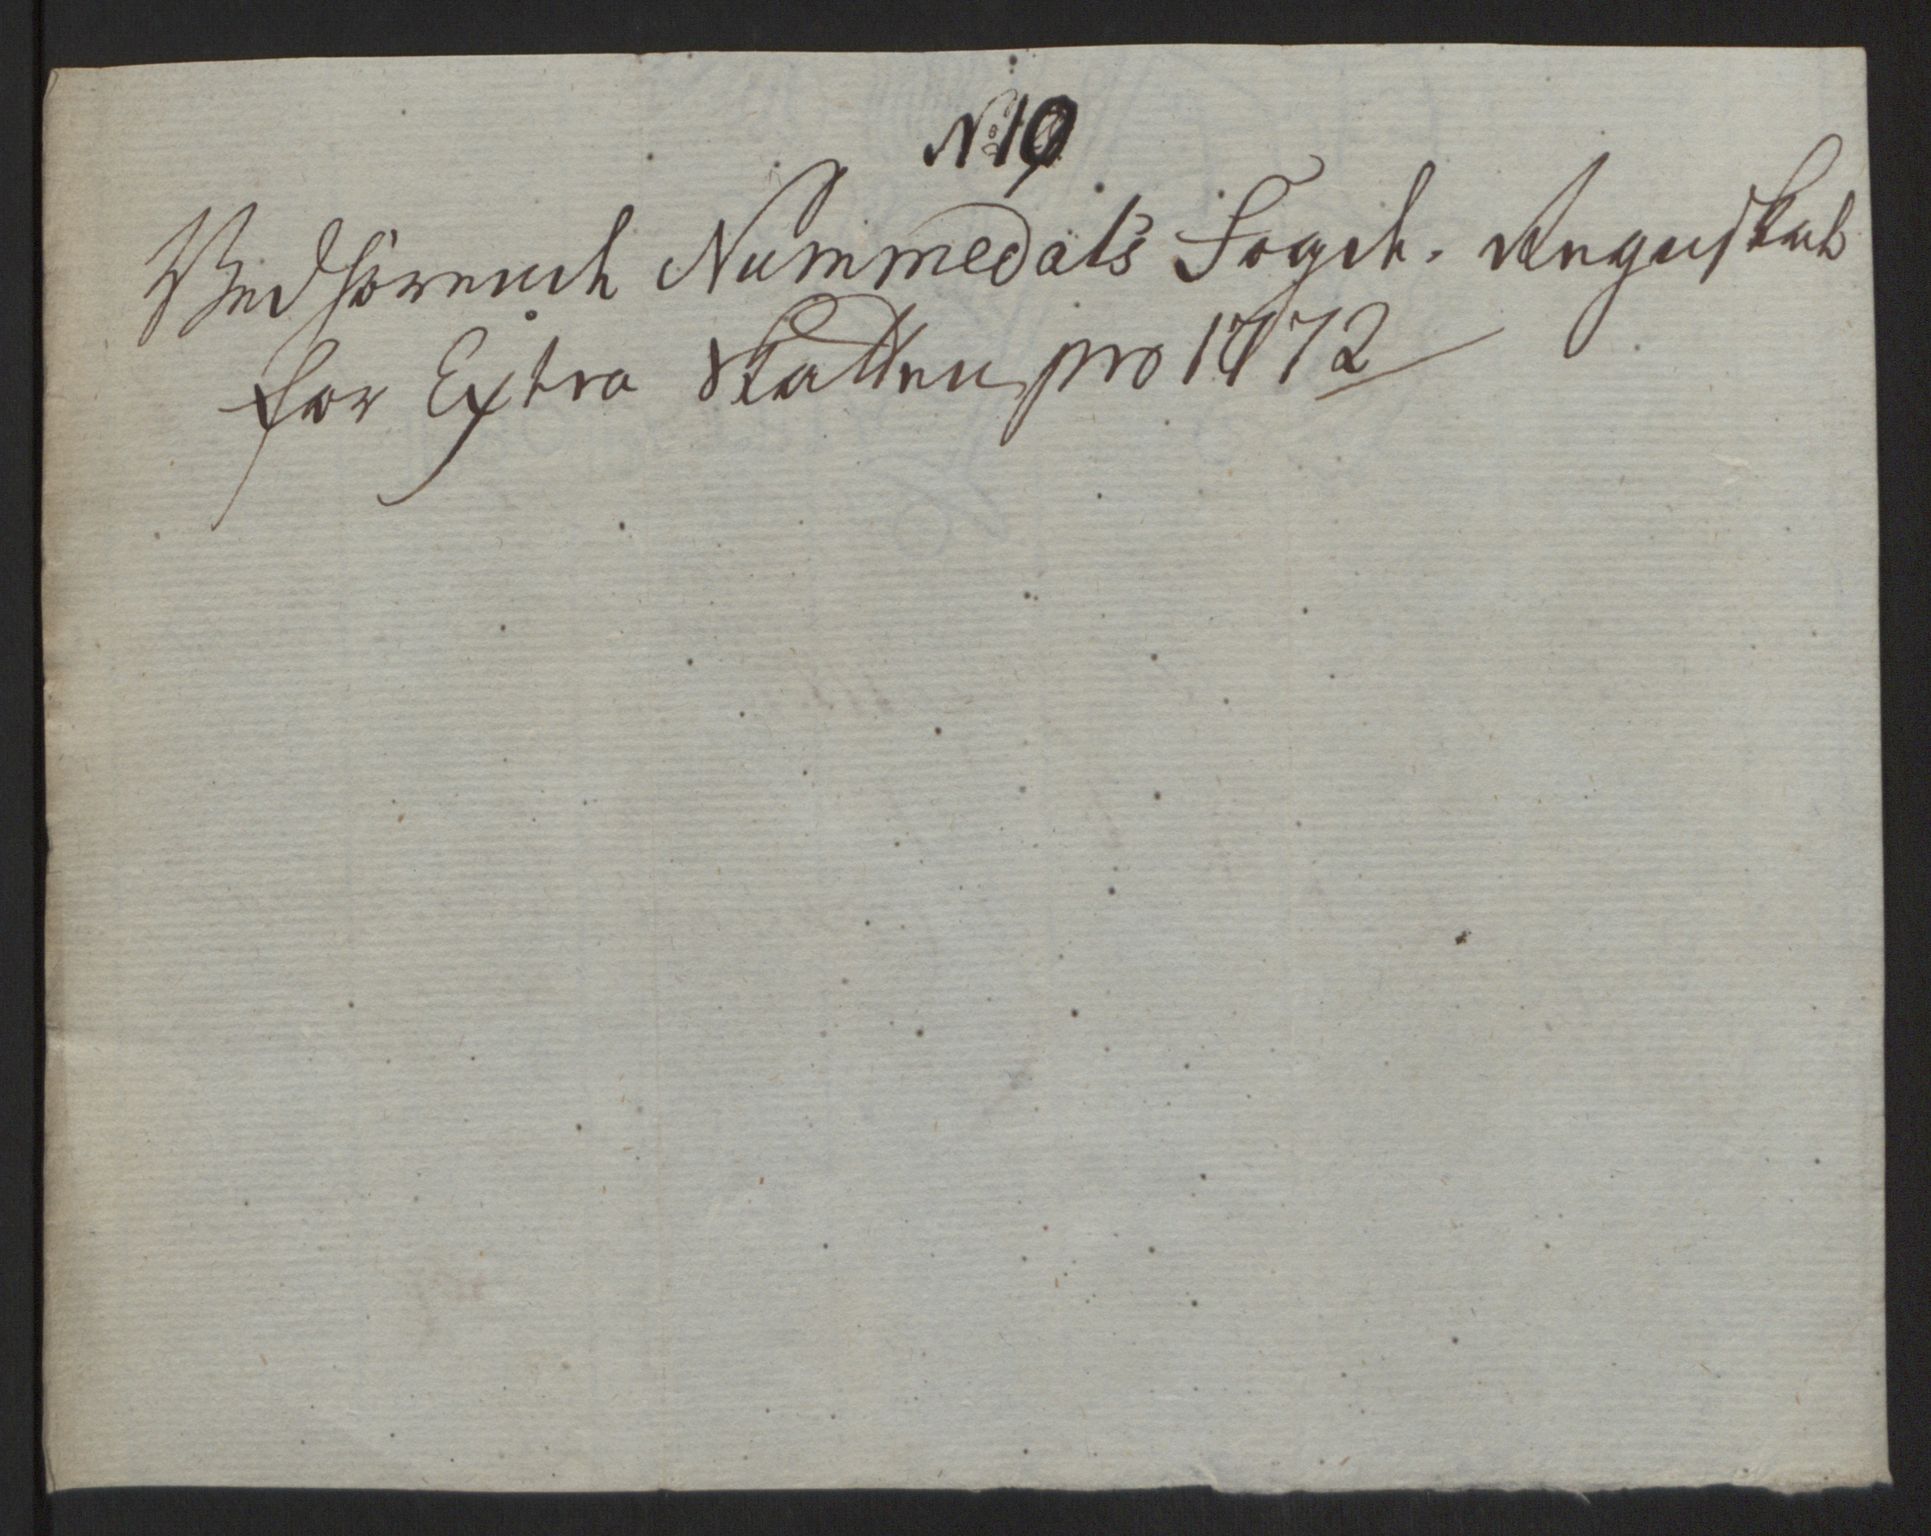 No 19
Vedhørende Nummedals Fogd. Regnskab
for Extra Skatten pro 1772